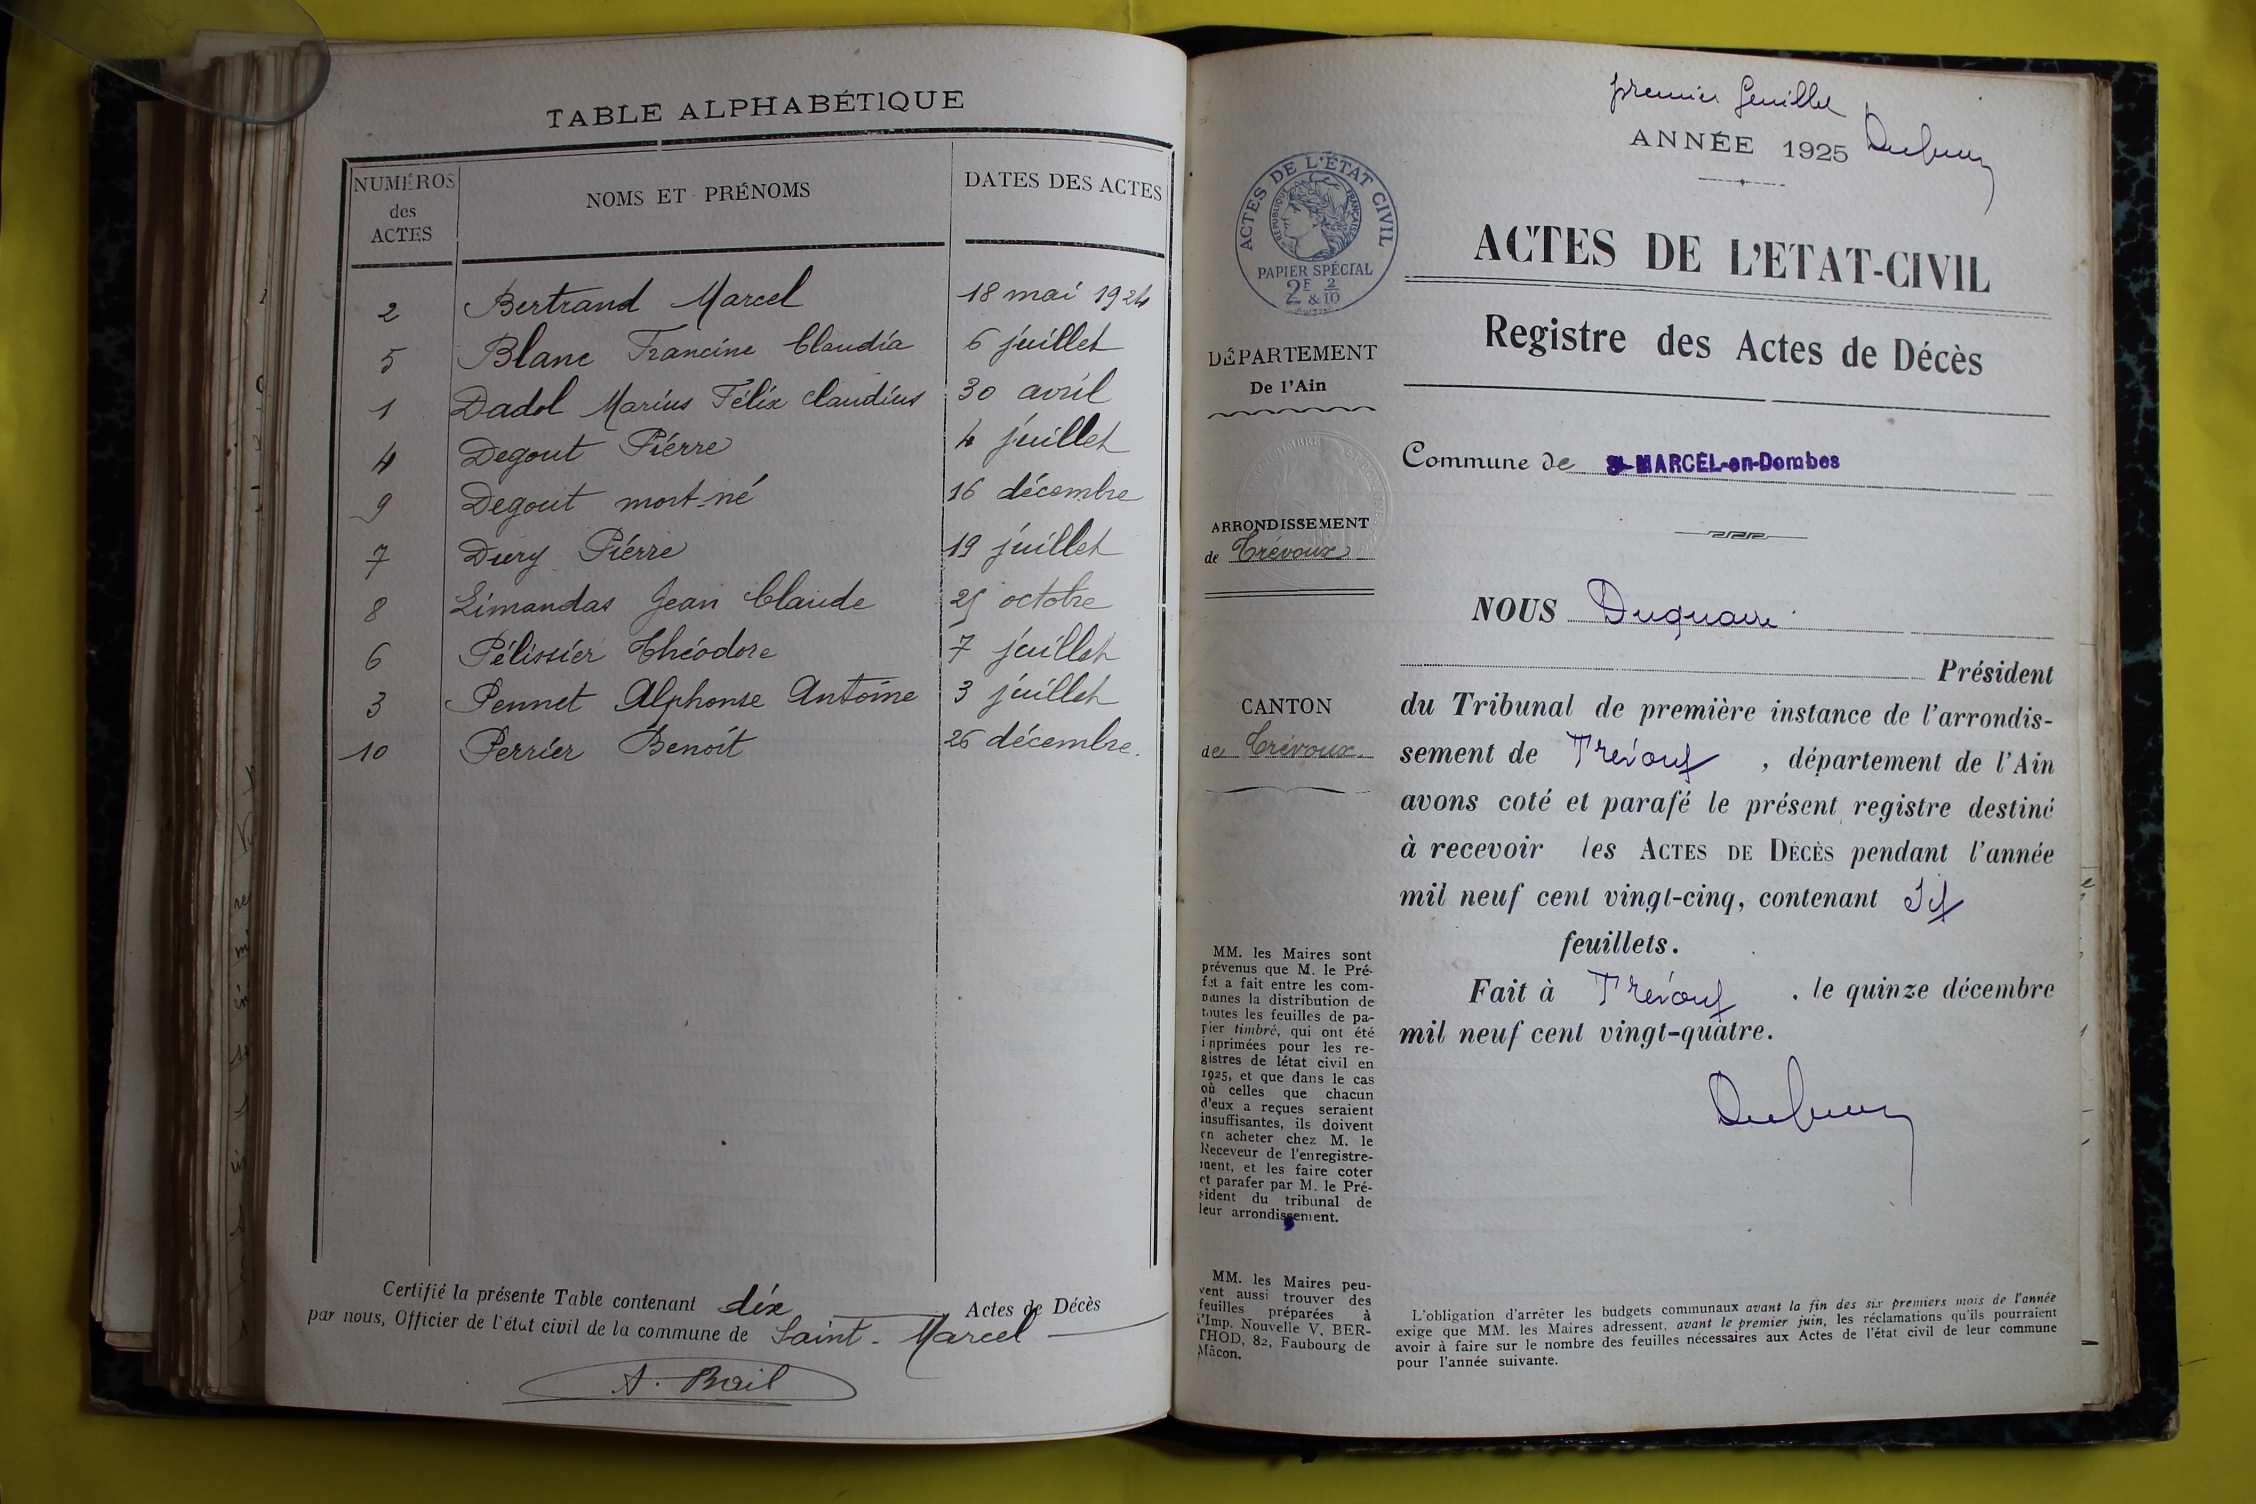 TABLE ALPHABÉTIQUE
NUMÉROS des ACTES NOMS ET PRÉNOMS DATES DES ACTES
2 Bertrand Marcel 18 mai 1924
5 Blanc Francine Claudia 6 juillet
1 Dadol Marius Félix Claudius 30 avril
4 Degout Pierre 4 juillet
9 Degout mort-né 16 décembre
7 Dury Pierre 19 juillet
8 Limandas Jean Claude 25 octobre
6 Pélissier Théodore 7 juillet
3 Pennet Alphonse Antoine 3 juillet
10 Perrier Benoît 26 décembre.
Certifié la présente Table contenant dix Actes de Décès
par nous, Officier de l'état civil de la commune de Saint-Marcel
A. Brail
premier feuillet
ANNÉE 1925
ACTES DE L'ÉTAT CIVIL
RÉPUBLIQUE FRANÇAISE
PAPIER SPÉCIAL
2F & 2/10
DÉPARTEMENT
De l'Ain
ARRONDISSEMENT
de Trévoux
CANTON
de Trévoux.
MM. les Maires sont
prévenus que M. le Pré-
fet a fait entre les com-
munes la distribution de
toutes les feuilles de pa-
pier timbré, qui ont été
imprimées pour les re-
gistres de létat civil en
1925, et que dans le cas
où celles que chacun
d'eux a reçues seraient
insuffisantes, ils doivent
en acheter chez M. le
Receveur de l'enregistre-
ment, et les faire coter
et parafer par M. le Pré-
sident du tribunal de
leur arrondissement.
MM. les Maires peu-
vent aussi trouver des
feuilles préparées à
l'Imp. Nouvelle V. BER-
THOD, 82, Faubourg de
Mâcon.
ACTES DE L'ETAT-CIVIL
Registre des Actes de Décès
Commune de St-MARCEL-en-Dombes
NOUS Duquaire
Président
du Tribunal de première instance de l'arrondis-
sement de Trévoux, département de l'Ain
avons coté et parafé le présent registre destiné
à recevoir les ACTES DE DÉCÈS pendant l'année
mil neuf cent vingt-cinq, contenant Six
feuillets.
Fait à Trévoux, le quinze décembre
mil neuf cent vingt-quatre.
L'obligation d'arrêter les budgets communaux avant la fin des six premiers mois de l'année
exige que MM. les Maires adressent, avant le premier juin, les réclamations qu'ils pourraient
avoir à faire sur le nombre des feuilles nécessaires aux Actes de l'état civil de leur commune
pour l'année suivante.